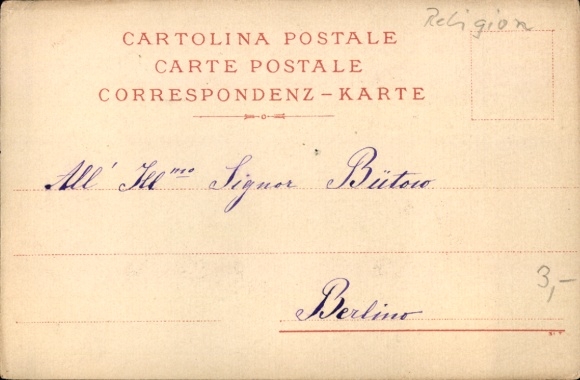 Religion
CARTOLINA POSTALE
CARTE POSTALE
CORRESPONDENZ-KARTE
All' Ill.mo Signor Bütow.
3,-
Berlino